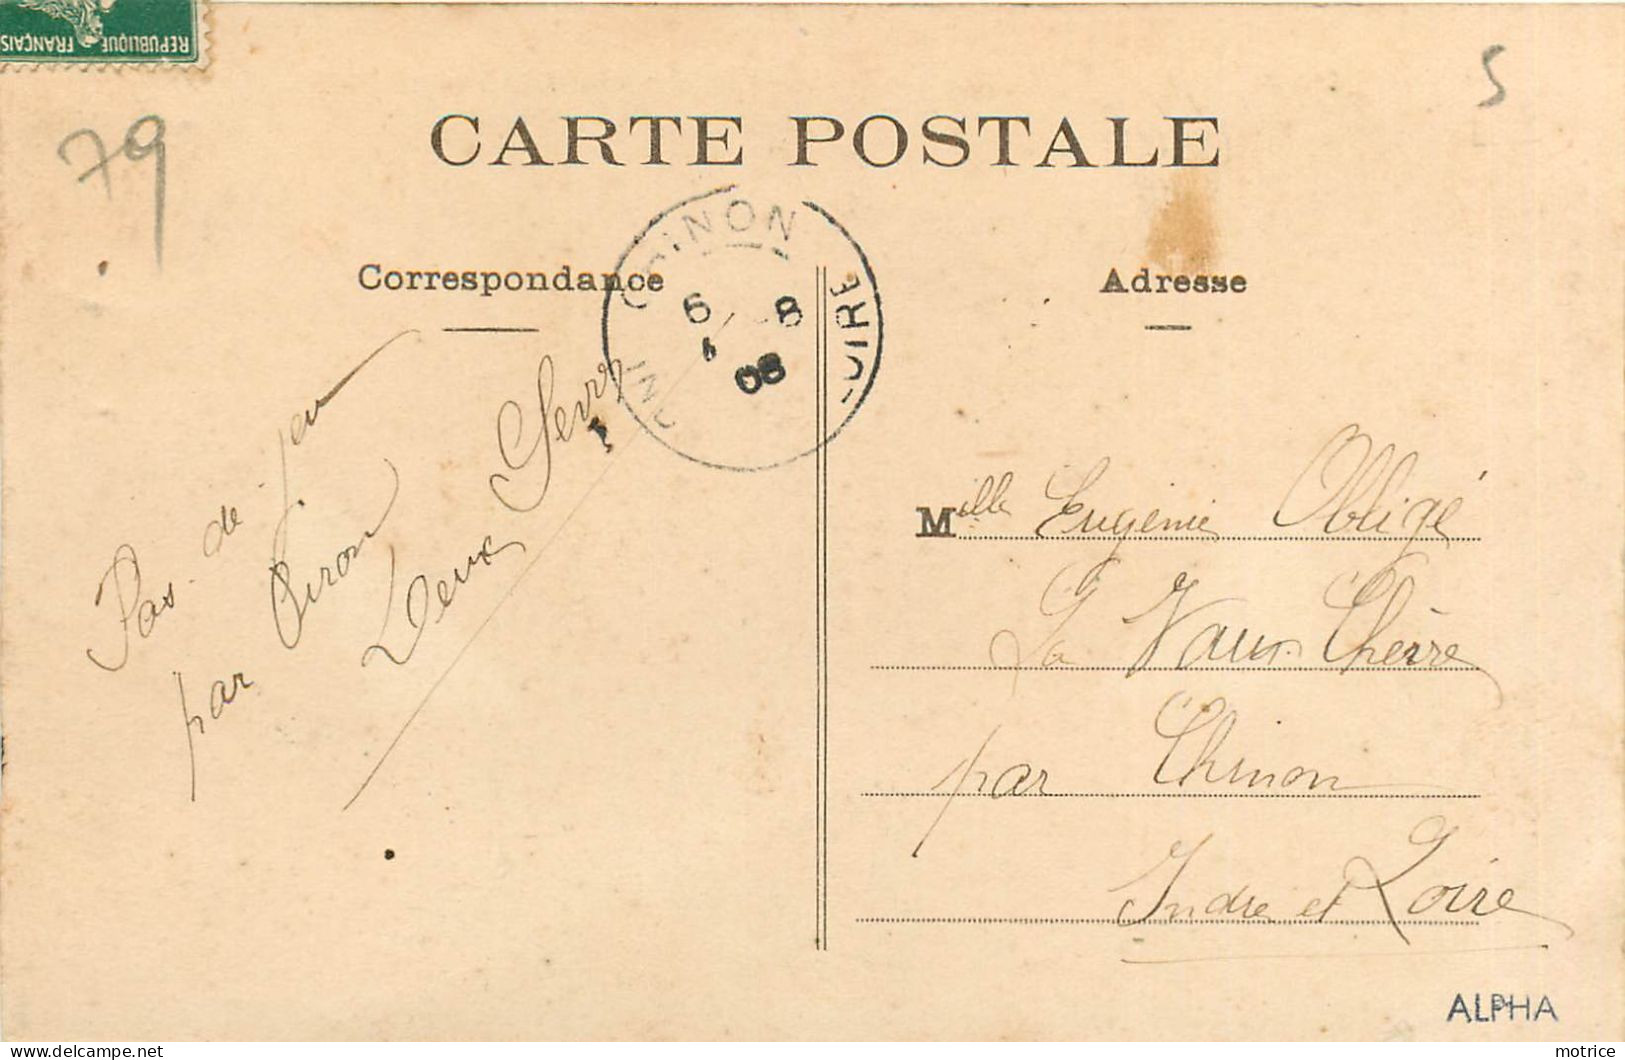 RÉPUBLIQUE FRANÇAISE
79
S
CARTE POSTALE
CHINON
6 - 8
08
INDRE
LOIRE
Correspondance
Adresse
Pas de jeu
par Oiron
Deux Sèvres
Mlle Eugénie Obligé
La Vaux Chèvre
par Chinon
Indre et Loire
ALPHA
motrice